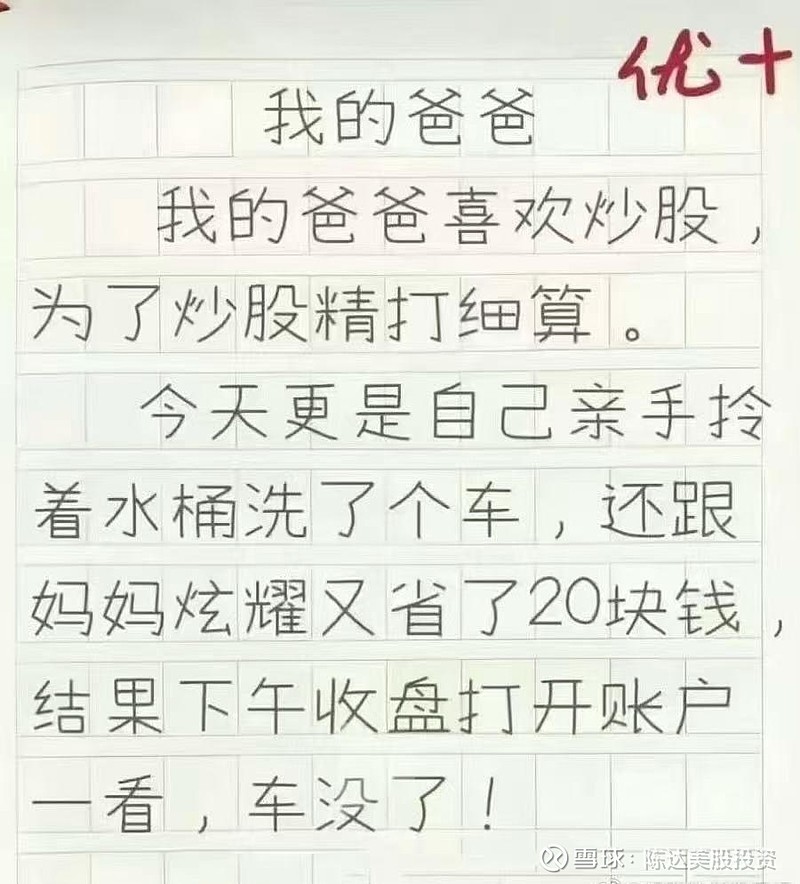 优+
我的爸爸
我的爸爸喜欢炒股，
为了炒股精打细算。
今天更是自己亲手拎
着水桶洗了个车，还跟
妈妈炫耀又省了20块钱，
结果下午收盘打开账户
一看，车没了！
雪球：陈达美股投资